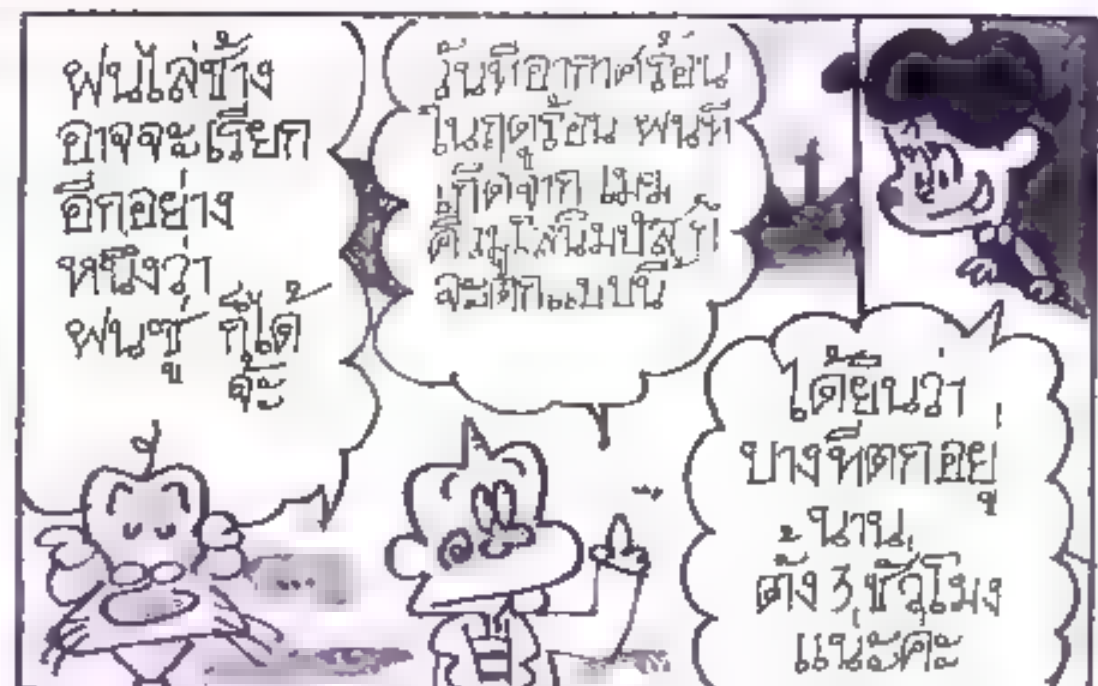 ฝนไล่ช้าง
อาจจะเรียก
อีกอย่าง
หนึ่งว่า
ฝนซู่ ก็ได้
จ้ะ
วันที่อากาศร้อน
ในฤดูร้อน ฝนที่
เกิดจาก เมฆ
คิวมูโลนิมบัส ก็
จะตกแบบนี้
ได้ยินว่า
บางทีตกอยู่
นาน
ตั้ง 3 ชั่วโมง
แน่ะค่ะ